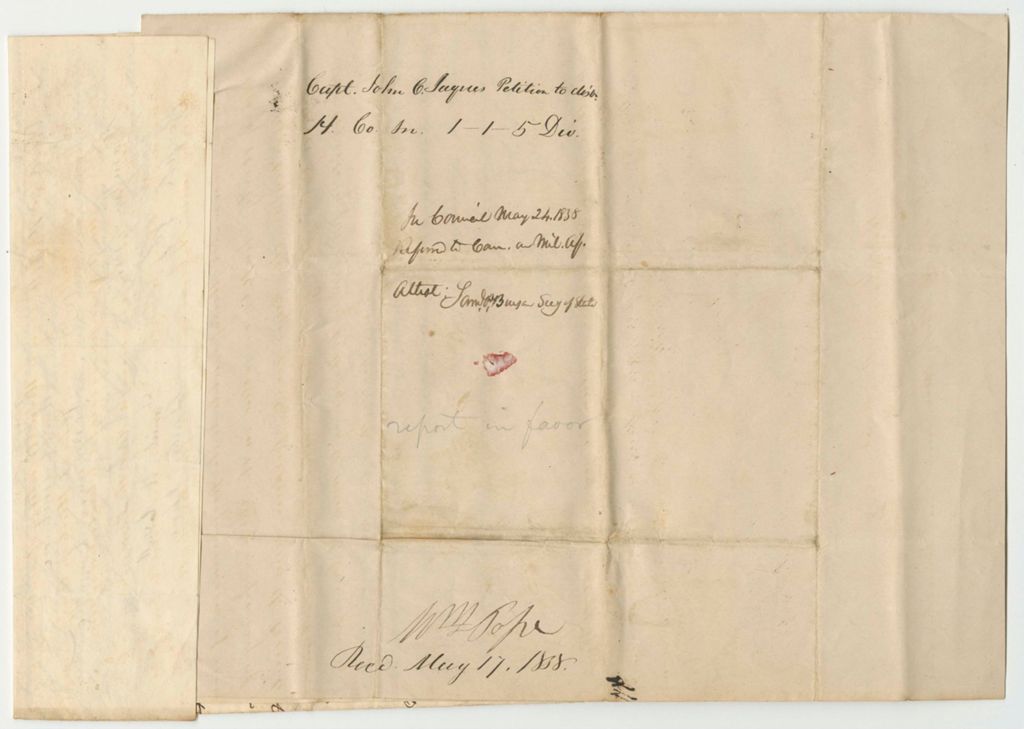 Capt. John C. Jaques Petition to disb.
H. Co. In. 1-1-5 Div.
In Council May 24. 1838
Referred to Com. on Mil. Af.
Attest; Saml. P. Benson Secy of State
report in favor
Wm Pope
Recd. May 17. 1838.